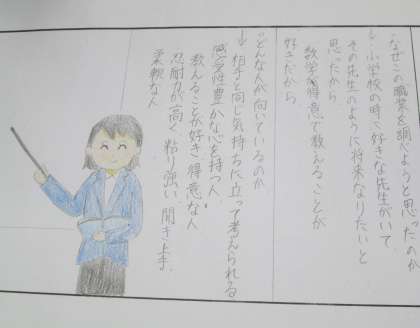 ・なぜこの職業を調べようと思ったのか
↓・小学校の時、好きな先生がいて
その先生のように将来なりたいと
思ったから
数学が得意で教えることが
好きだから
・どんな人が向いているのか
↓相手と同じ気持ちに立って考えられる
感受性豊かな心を持つ人
教えることが好き、得意な人
忍耐力が高く粘り強い、聞き上手、
柔軟な人